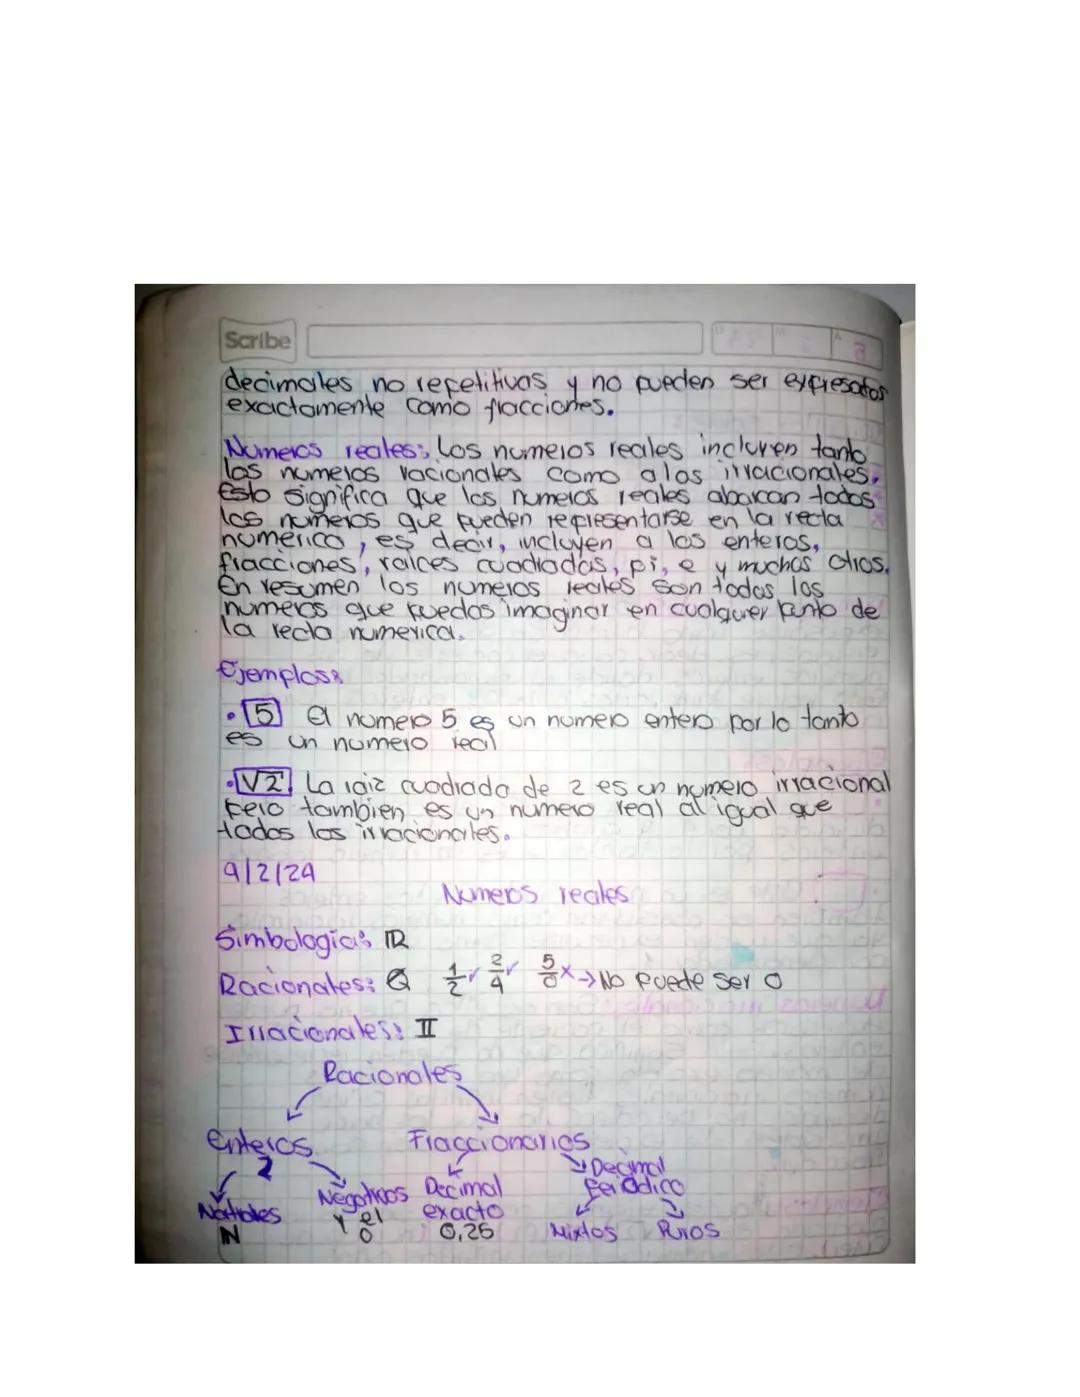 Scribe
decimales no repetitivos y no pueden ser expresados
exactamente como fracciones.
Numeros reales: Los numeros reales incluyen tanto
los numeros racionales como a los irracionales.
Esto significa que los numeros reales abarcan todos
los numeros que pueden representarse en la recta
numerica, es decir, incluyen a los enteros,
fracciones, raices cuadradas, pi, e y muchos otros.
En resumen los numeros reales son todos los
numeros que puedas imaginar en cualquier punto de
la recta numerica.
Ejemplos:
• 5 El numero 5 es un numero entero por lo tanto
es un numero real
• √2 La raiz cuadrada de 2 es un numero irracional
pero tambien es un numero real al igual que
todos los irracionales.
9/2/24
Numeros reales
Simbologia: ℝ
Racionales: Q 1/2 ✓ 2/4 ✓ 5/0 x → No puede ser 0
Irracionales: II
Racionales
Enteros Fraccionarios
Z Decimal
Negativos Decimal periodico
Naturales y el exacto
N 0 0,25 Mixtos Puros